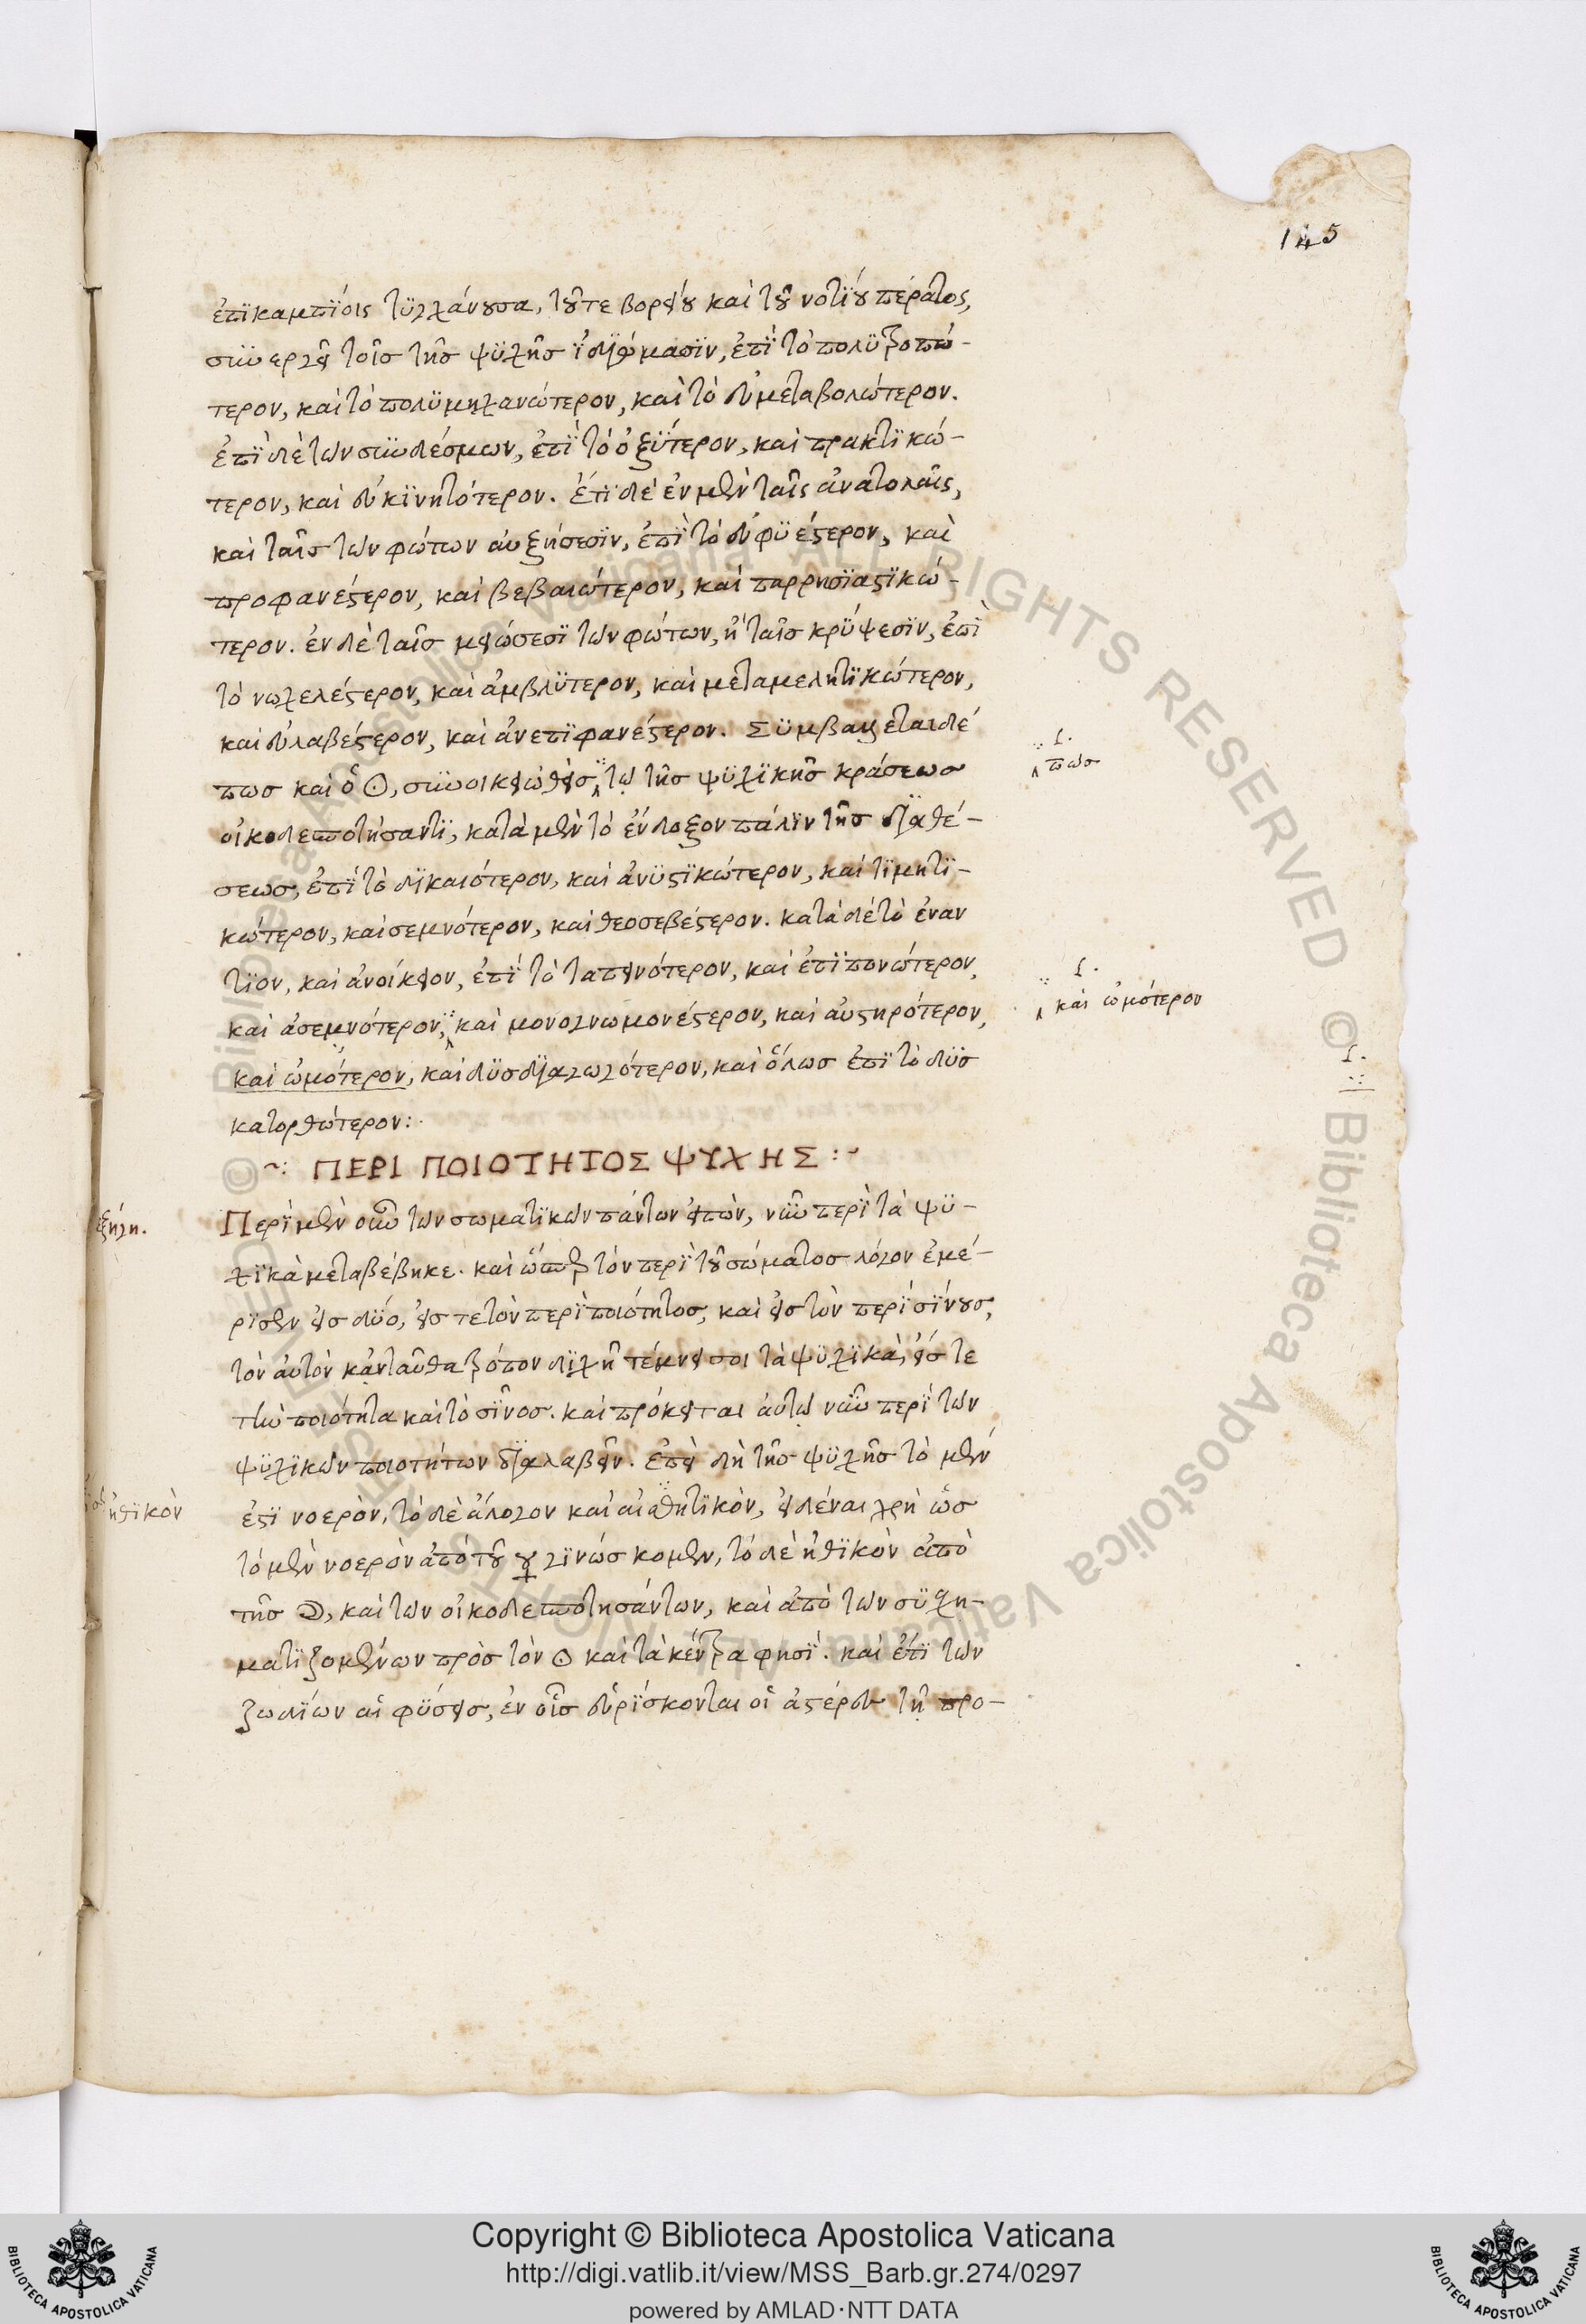 145
ἐπικαμπίοις τυγχάνουσα, τοῦ τε βορείου καὶ τοῦ νοτίου πέρατος,
συνεργεῖ τοῖς τῆς ψυχῆς ἰδιώμασιν, ἐπὶ τὸ πολυτροπώ-
τερον, καὶ τὸ πολυμηχανώτερον, καὶ τὸ εὐμεταβολώτερον.
ἐπὶ δὲ τῶν συνδέσμων, ἐπὶ τὸ ὀξύτερον, καὶ πρακτικώ-
τερον, καὶ εὐκινητότερον. ἔτι δὲ ἐν μὲν ταῖς ἀνατολαῖς,
καὶ ταῖς τῶν φώτων αὐξήσεσιν, ἐπὶ τὸ εὐφυέστερον, καὶ
προφανέστερον, καὶ βεβαιώτερον, καὶ παρρησιαστικώ-
τερον. ἐν δὲ ταῖς μειώσεσι τῶν φώτων, ἢ ταῖς κρύψεσιν, ἐπὶ
τὸ νωχελέστερον, καὶ ἀμβλύτερον, καὶ μεταμελητικώτερον,
καὶ εὐλαβέστερον, καὶ ἀνεπιφανέστερον. Συμβάλλεται δέ
πως καὶ ὁ ☉, συνοικειωθεὶς τῷ τῆς ψυχικῆς κράσεως
πως
οἰκοδεσποτήσαντι, κατὰ μὲν τὸ ἔνδοξον πάλιν τῆς διαθέ-
σεως, ἐπὶ τὸ δικαιότερον, καὶ ἀνυστικώτερον, καὶ τιμητι-
κώτερον, καὶ σεμνότερον, καὶ θεοσεβέστερον. κατὰ δὲ τὸ ἐναν
τίον, καὶ ἀνοίκειον, ἐπὶ τὸ ταπεινότερον, καὶ ἐπιπονώτερον,
καὶ ἀσεμνότερον, καὶ μονογνωμονέστερον, καὶ αὐστηρότερον,
καὶ ὠμότερον
καὶ ὠμότερον, καὶ δυσδιαγωγότερον, καὶ ὅλως ἐπὶ τὸ δυσ
κατορθώτερον:
~: ΠΕΡΙ ΠΟΙΟΤΗΤΟΣ ΨΥΧΗΣ :~
ἐξήγη.
Περὶ μὲν οὖν τῶν σωματικῶν πάντων εἰπὼν, νῦν περὶ τὰ ψυ-
χικὰ μεταβέβηκε. καὶ ὥσπερ τὸν περὶ τοῦ σώματος λόγον ἐμέ-
ρισεν εἰς δύο, εἴς τε τὸν περὶ ποιότητος, καὶ εἰς τὸν περὶ σίνους,
τὸν αὐτὸν κἀνταῦθα τρόπον διχῆ τέμνει σοι τὰ ψυχικὰ, εἴς τε
τὴν ποιότητα καὶ τὸ σῖνος. καὶ πρόκειται αὐτῷ νῦν περὶ τῶν
ψυχικῶν ποιοτήτων διαλαβεῖν. ἐπεὶ δὴ τῆς ψυχῆς τὸ μέν
ἠθικὸν
ἐστι νοερὸν, τὸ δὲ ἄλογον καὶ αἰσθητικὸν, εἰδέναι χρὴ ὡς
τὸ μὲν νοερὸν ἀπὸ τοῦ ☿ γινώσκομεν, τὸ δὲ ἠθικὸν ἀπὸ
τῆς ☽, καὶ τῶν οἰκοδεσποτησάντων, καὶ ἀπὸ τῶν συσχη-
ματιζομένων πρὸς τὸν ☉ καὶ τὰ κέντρα φησί. καὶ ἔτι τῶν
ζωδίων αἱ φύσεις, ἐν οἷς εὑρίσκονται οἱ ἀστέρες τῇ προ-
Copyright © Biblioteca Apostolica Vaticana
http://digi.vatlib.it/view/MSS_Barb.gr.274/0297
powered by AMLAD·NTT DATA